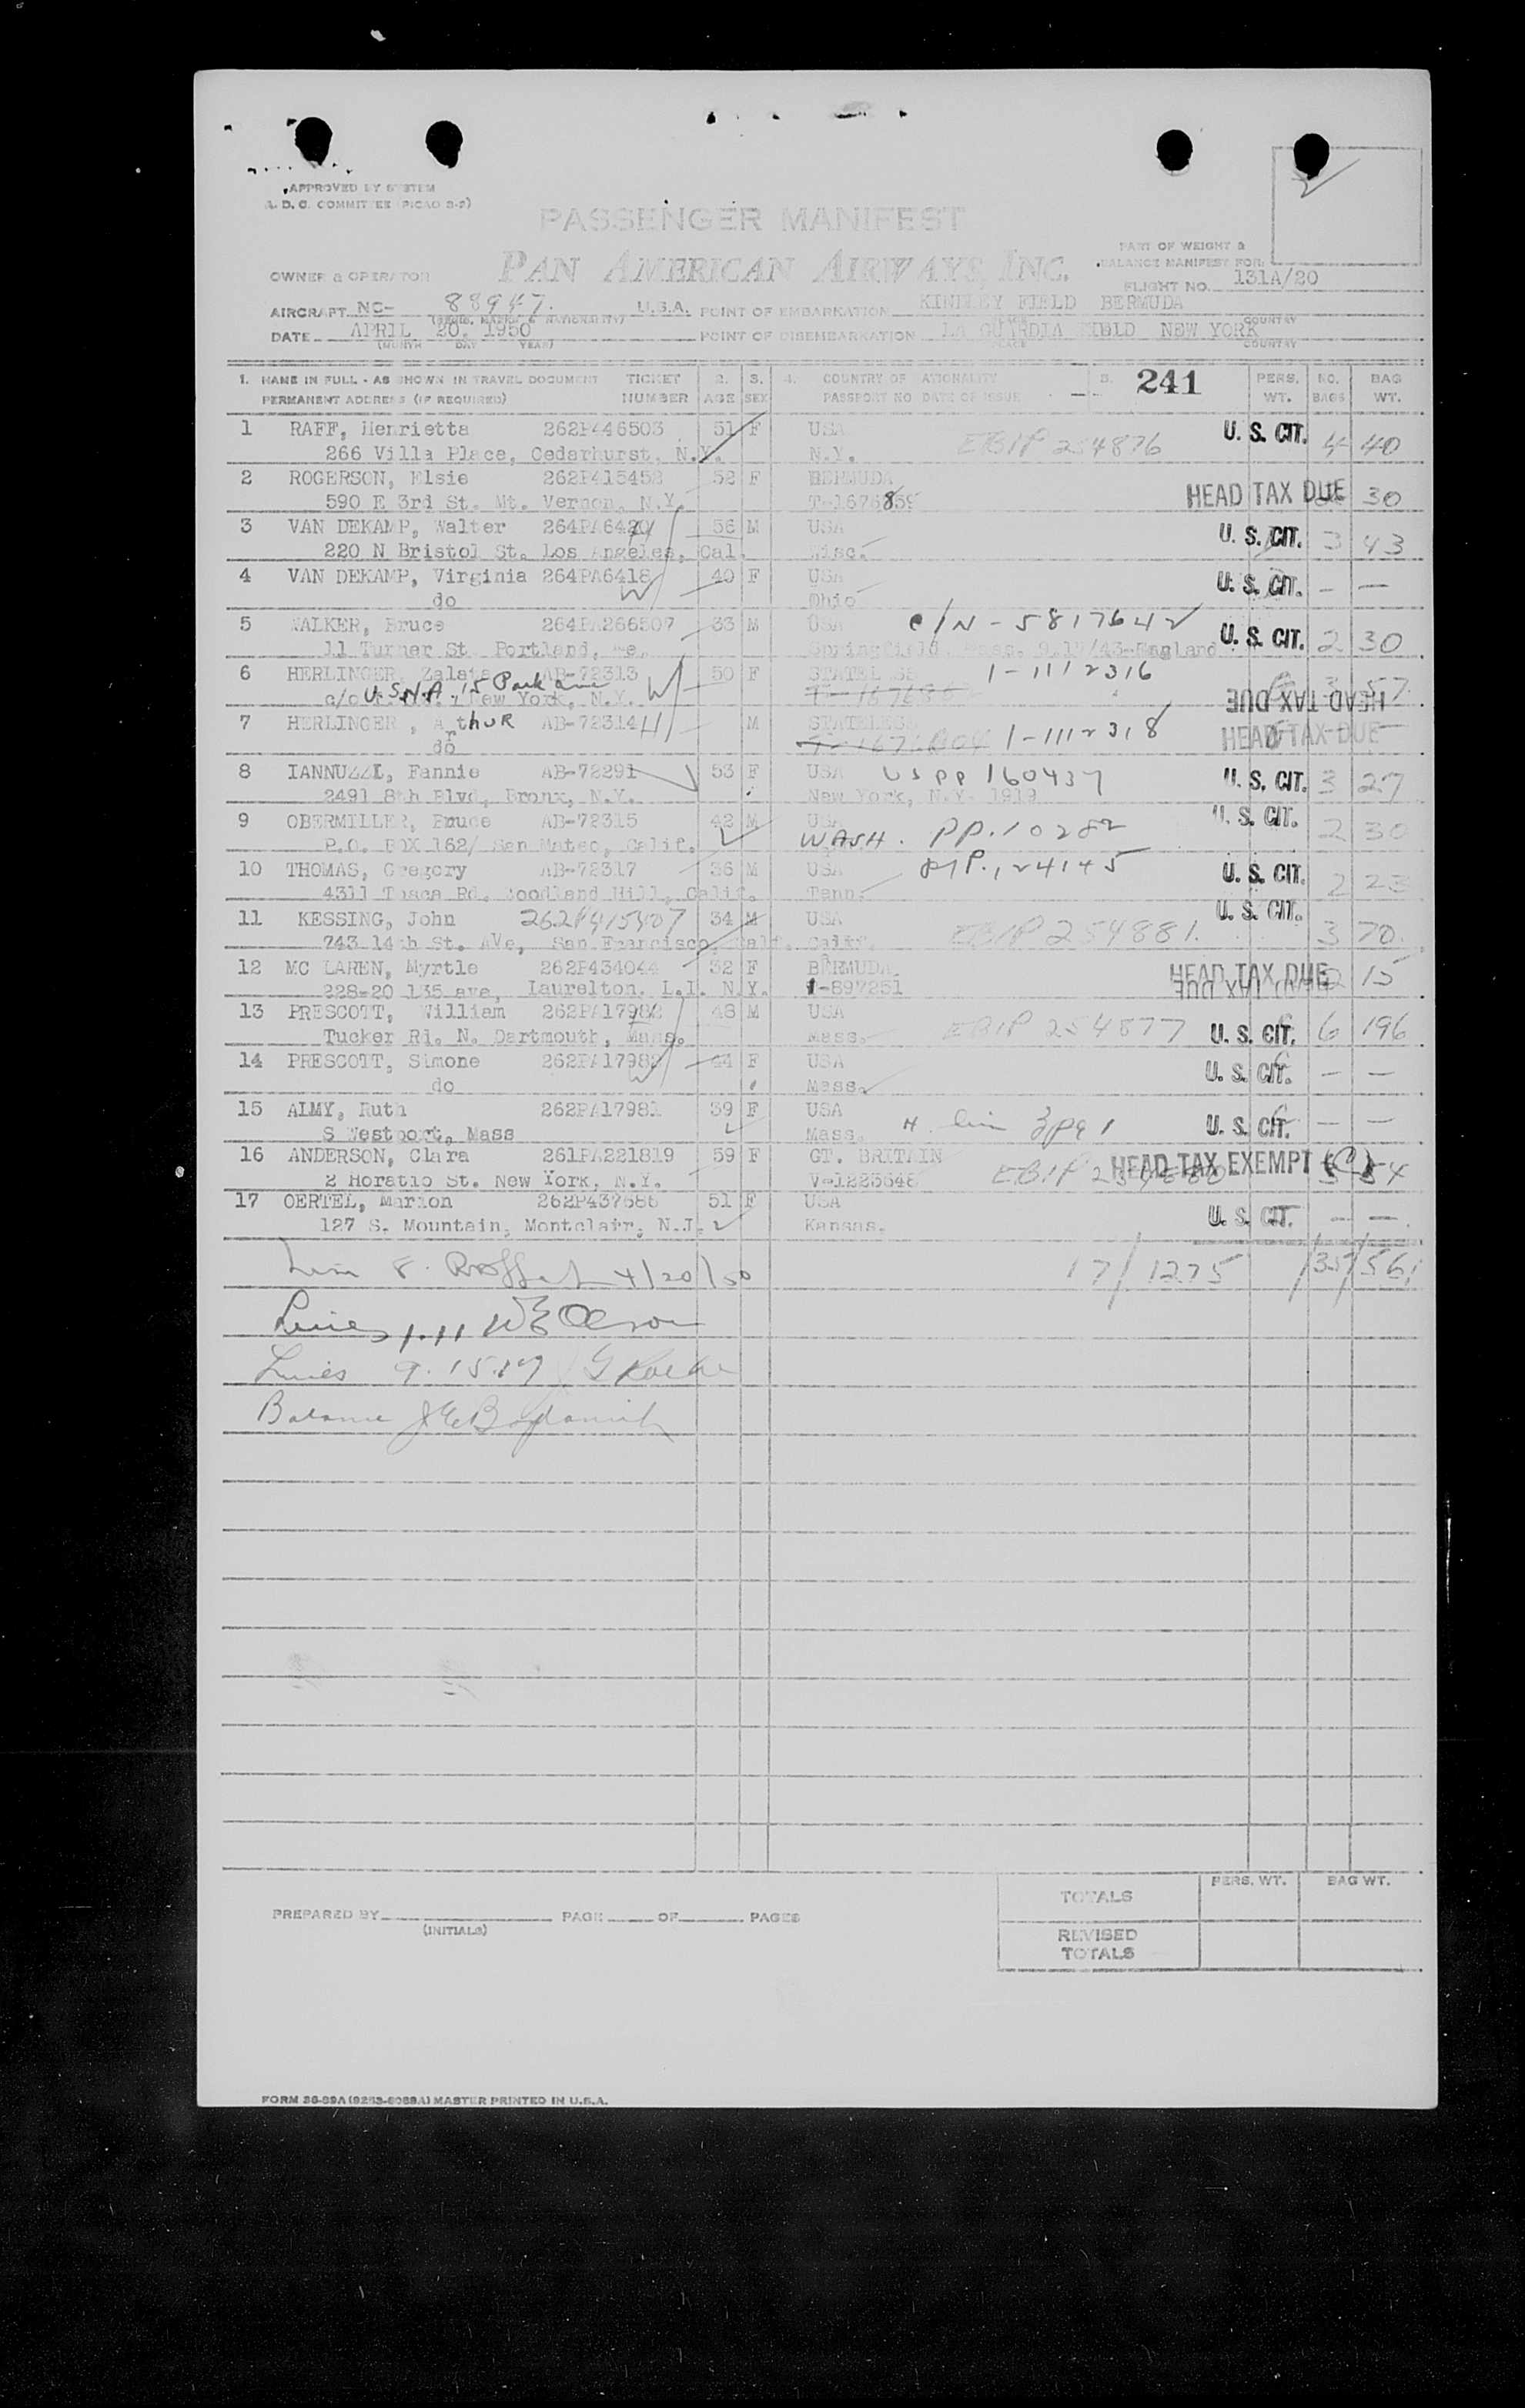 APPROVED BY SYSTEM
A. D. C. COMMITTEE (PICAO 2-2)
PASSENGER MANIFEST
PAN AMERICAN AIRWAYS, INC.
PART OF WEIGHT &
BALANCE MANIFEST FOR:
OWNER & OPERATOR
FLIGHT NO. 131A/20
AIRCRAFT NC- 88947. U.S.A. POINT OF EMBARKATION KINDLEY FIELD BERMUDA
DATE APRIL 20, 1950 POINT OF DISEMBARKATION LA GUARDIA FIELD NEW YORK
(MONTH DAY YEAR) PLACE COUNTRY
1. NAME IN FULL - AS SHOWN IN TRAVEL DOCUMENT TICKET 2. 3. 4. COUNTRY OF NATIONALITY 5. 241 PERS. NO. BAG
PERMANENT ADDRESS (IF REQUIRED) NUMBER AGE SEX PASSPORT NO DATE OF ISSUE WT. BAGS WT.
1 RAFF, Henrietta 262P446503 51 F USA EBIP 254876 U. S. CIT. 4 40
266 Villa Place, Cedarhurst, N.Y. N.Y.
2 ROGERSON, Elsie 262P415452 52 F BERMUDA HEAD TAX DUE 30
590 E 3rd St. Mt. Vernon, N.Y. T-1676859
3 VAN DEKAMP, Walter 264PA6420 56 M USA U. S. CIT. 3 43
220 N Bristol St. Los Angeles, Cal. Wisc.
4 VAN DEKAMP, Virginia 264PA6418 40 F USA U. S. CIT. - -
do Ohio
5 WALKER, Bruce 264PA266507 33 M USA C/N - 5817642 U. S. CIT. 2 30
11 Turner St. Portland, Me. Springfield, England
6 HERLINGER, AB-72313 50 F STATELESS 1-1112316 3 57
c/o U.S.N.A. 15 Park Ave New York, N.Y. HEAD TAX DUE
7 HERLINGER, Arthur AB-72314 M STATELESS 1-1112318 HEAD TAX DUE -
do
8 IANNUZZI, Fannie AB-72291 53 F USA US PP 160437 U. S. CIT. 3 27
2491 8th Blvd, Bronx, N.Y. New York, N.Y. 1919
9 OBERMILLER, Bruce AB-72315 42 M USA U. S. CIT. 2 30
P.O. BOX 162/ San Mateo, Calif. WASH. PP.10282
10 THOMAS, Gregory AB-72317 36 M USA PP.124145 U. S. CIT. 2 23
4311 Rd. Woodland Hill, Calif. Tenn.
11 KESSING, John 262P415407 34 M USA EBIP 254881. U. S. CIT. 3 70.
743 14th St. AVe, San Francisco, Calif. Calif.
12 MC LAREN, Myrtle 262P434044 32 F BERMUDA HEAD TAX DUE 2 15
228-20 135 ave, Laurelton, L.I. N.Y. T-897251 HEAD TAX DUE
13 PRESCOTT, William 262PA17982 48 M USA EBIP 254877 U. S. CIT. 6 196
Tucker Rd. N. Dartmouth, Mass. Mass.
14 PRESCOTT, Simone 262PA17982 44 F USA U. S. CIT. - -
do Mass.
15 ALMY, Ruth 262PA17981 39 F USA U. S. CIT. - -
S Westport, Mass Mass.
16 ANDERSON, Clara 261PA221819 59 F GT. BRITAIN HEAD TAX EXEMPT (C)
2 Horatio St. New York, N.Y. V-1223648 EBIP
17 OERTEL, Marion 262P437686 51 F USA U. S. CIT. - -.
127 S. Mountain, Montclair, N.J. Kansas.
4/20/50 17/ 1275 /35/ 561
Lines 1.11
Lines 9.15.17
Balance
TOTALS PERS. WT. BAG WT.
PREPARED BY PAGE OF PAGES
(INITIALS)
REVISED
TOTALS
FORM 36-99A MASTER PRINTED IN U.S.A.